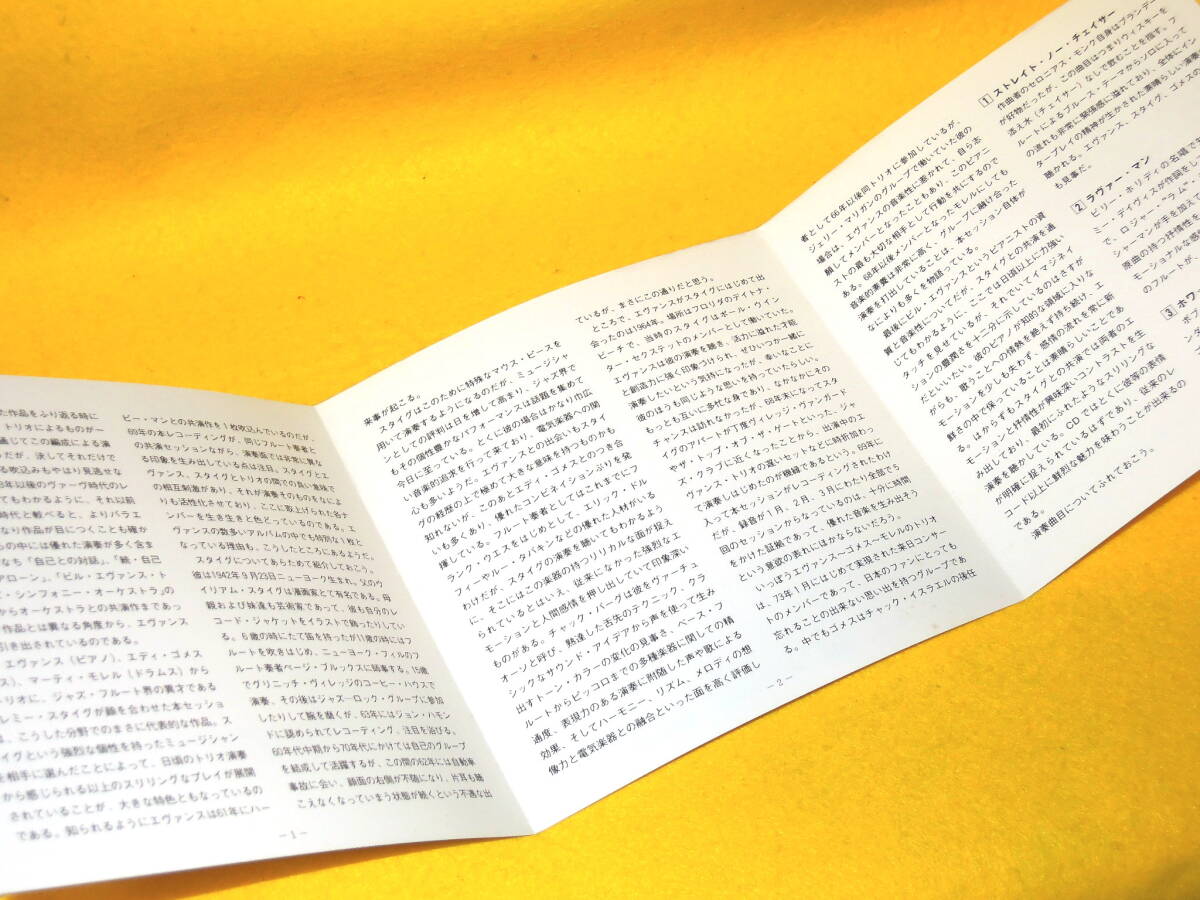 た作品をふり返る時に
トリオによるものが一
通じてこの編成による演
だが、決してそれだけで
る吹込みもやはり見逃せな
3年以後のヴァーヴ時代のレ
てもわかるように、それ以前
時代と較べると、よりバラエ
なり作品が目につくことも確か
らの中には優れた演奏が多く含ま
なち「自己との対話」、「続・自己
アローン」、「ビル・エヴァンス・ト
ス・シンフォニー・オーケストラ」の
からオーケストラとの共演作まであっ
作品とは異なる角度から、エヴァンス
引き出されているのである。
エヴァンス（ピアノ）、エディ・ゴメス
ス）、マーティ・モレル（ドラムス）から
トリオに、ジャズ・フルート界の異才である
レミー・スタイグが顔を合わせた本セッショ
は、こうした分野でのまさに代表的な作品。ス
イグという強烈な個性を持ったミュージシャン
を相手に選んだことによって、日頃のトリオ演奏
から感じられる以上のスリリングなプレイが展開
されていることが、大きな特色ともなっているの
である。知られるようにエヴァンスは61年にハー
ビー・マンとの共演作を1枚吹込んでいるのだが、
69年の本レコーディングが、同じフルート奏者と
の共演セッションながら、演奏面では非常に異な
る印象を生み出している点は注目。スタイグとエ
ヴァンス、スタイグとトリオの間での良い意味で
の相互刺激があり、それが演奏そのものをなによ
りも活性化させており、ここに取上げられた各ナ
ンバーを生き生きと色どっているのである。エ
ヴァンスの数多いアルバムの中でも特別な1枚と
なっている理由も、こうしたところにあるようだ。
スタイグについてあらためて紹介しておこう。
彼は1942年9月23日ニューヨーク生まれ。父のウ
イリアム・スタイグは漫画家として有名である。母
親および妹達も芸術家であって、彼も自分のレ
コード・ジャケットをイラストで飾ったりしてい
る。6歳の時にたて笛を持ったが11歳の時にはフ
ルートを吹きはじめ、ニューヨーク・フィルのフ
ルート奏者ページ・ブルックスに師事する。15歳
でグリニッチ・ヴィレッジのコーヒー・ハウスで
演奏、その後はジャズ=ロック・グループに参加
したりして腕を磨くが、63年にはジョン・ハモン
ドに認められてレコーディング、注目を浴びる。
60年代中期から70年代にかけては自己のグループ
を結成して活躍するが、この間の62年には自動車
事故に会い、顔面の右側が不随になり、片耳も聴
こえなくなっていまう状態が続くという不運な出
－1－
来事が起こる。
スタイグはこのために特殊なマウス・ピースを
用いて演奏するようになるのだが、ミュージシャ
ンとしての評判は日を増して高まり、ジャズ界で
もその個性豊かなパフォーマンスは話題を集めて
今日に至っている。とくに彼の場合はかなり巾広
い音楽的追求を行って来ており、電気楽器への関
心も多いようだ。エヴァンスとの出会いもスタイ
グの経歴の上で極めて大きな意味を持つものかも
知れないが、このあとエディ・ゴメスとのつき合
いも多くあり、優れたコンビネイションぶりを発
揮している。フルート奏者としてはこれまでにフ
ランク・ウエスをはじめとして、エリック・ドル
フィーやルー・タバキンなどの優れた人材がいる
わけだが、スタイグの演奏を聴いてもわかるよう
に、そこにはこの楽器の持つリリカルな面が捉え
られているとはいえ、従来になかった強烈なエ
モーションと人間感情を押し出していて印象深い
ものがある。チャック・バーグは彼をヴァーチュ
オーソと呼び、熟達した舌先のテクニック、クラ
シックなサウンド・アイデアから声を使って生み
出すトーン・カラーの変化の見事さ、ベース・フ
ルートからピッコロまでの多種楽器に関しての精
通度、表現力のある演奏に附随した声や歌による
効果、そしてハーモニー、リズム、メロディの想
像力と電気楽器との融合といった面を高く評価し
ているが、まさにこの通りだと思う。
ところで、エヴァンスがスタイグにはじめて出
会ったのは1964年。場所はフロリダのデイトナ・
ビーチで、当時のスタイグはポール・ウイン
ター・セクステットのメンバーとして働いていた。
エヴァンスは彼の演奏を聴き、活力に溢れた才能
と創造力に強く印象づけられ、ぜひいつか一緒に
演奏したいという気持になったが、幸いなことに
彼のほうも同じような思いを持っていたらしい。
もっとも互いに多忙な身であり、なかなかにその
チャンスは訪れなかったが、68年末になってスタ
イグのアパートが丁度ヴィレッジ・ヴァンガード
やザ・トップ・オブ・ザ・ゲートといった、ジャ
ズ・クラブに近くなったことから、出演中のエ
ヴァンス・トリオの遅いセットなどに時折加わっ
て演奏しはじめたのが機縁であるという。69年に
入って本セッションがレコーディングされたわけ
だが、録音が1月、2月、3月にわたり全部で5
回のセッションからなっているのは、十分に時間
をかけた証拠であって、優れた音楽を生み出そう
という意欲の表れにほかならないだろう。
いっぽうエヴァンス〜ゴメス〜モレルのトリオ
は、73年1月にはじめて実現された来日コンサー
トのメンバーであって、日本のファンにとっても
忘れることの出来ない思い出を持つグループであ
る。中でもゴメスはチャック・イスラエルの後任
－2－
者として66年以後同トリオに参加しているが、
ジェリー・マリガンのグループで働いていた彼の
場合は、エヴァンスの音楽性に惹かれて、自ら志
願してメンバーとなったこともあり、このピアニ
ストの最も大切な相手として行動を共にするので
ある。68年以後メンバーとなったモレルにしても
音楽的素養は非常に高く、グループに融け合った
演奏を打出していることは、本セッション自体が
なによりも多くを物語っている。
最後にビル・エヴァンスというピアニストの資
質と音楽性についてだが、スタイグとの共演を通
じてもわかるように、ここでは日頃以上に力強い
タッチを見せているが、それでいてイマジネイ
ションの豊潤さを十二分に示しているのはさすが
だといいたい。彼のピアノが知的な領域に入りな
がらも、歌うことへの情熱を絶えず持ち続け、エ
モーションを少しも失わず、感情の流れを常に新
鮮さの中で保っていることは素晴らしいことであ
る。はからずもスタイグとの共演では両者のエ
モーションと抒情性が興味深いコントラストを生
み出しており、最初にふれたようなスリリングな
演奏を聴かしている。CDではとくに彼等の表情
が明確に捉えられているはずであり、従来のレ
コード以上に鮮烈な魅力を味わうことが出来るの
である。
演奏曲目についてふれておこう。
1 ストレイト・ノー・チェイサー
作曲者のセロニアス・モンク自身はブランデー
が好物だったが、この曲目はつまりウィスキーを
添え水（チェイサー）なしで飲むことを指す。フ
ルートによるブルース・テーマからソロに入って
の流れも非常に緊張感に溢れており、全体にイン
タープレイの精神が生かされた素晴らしい演奏
聴かれる。エヴァンス、スタイグ、ゴメスの
も見事だ。
2 ラヴァー・マン
ビリー・ホリディの名唱でも
ミー・デイヴィスが作詞をし
で、ロジャー“ラム”・
シャーマンが手を加えて
原曲の持つ抒情性を
モーショナルな感
のフルートが、
3 ホワッ
ボブ
ンタ